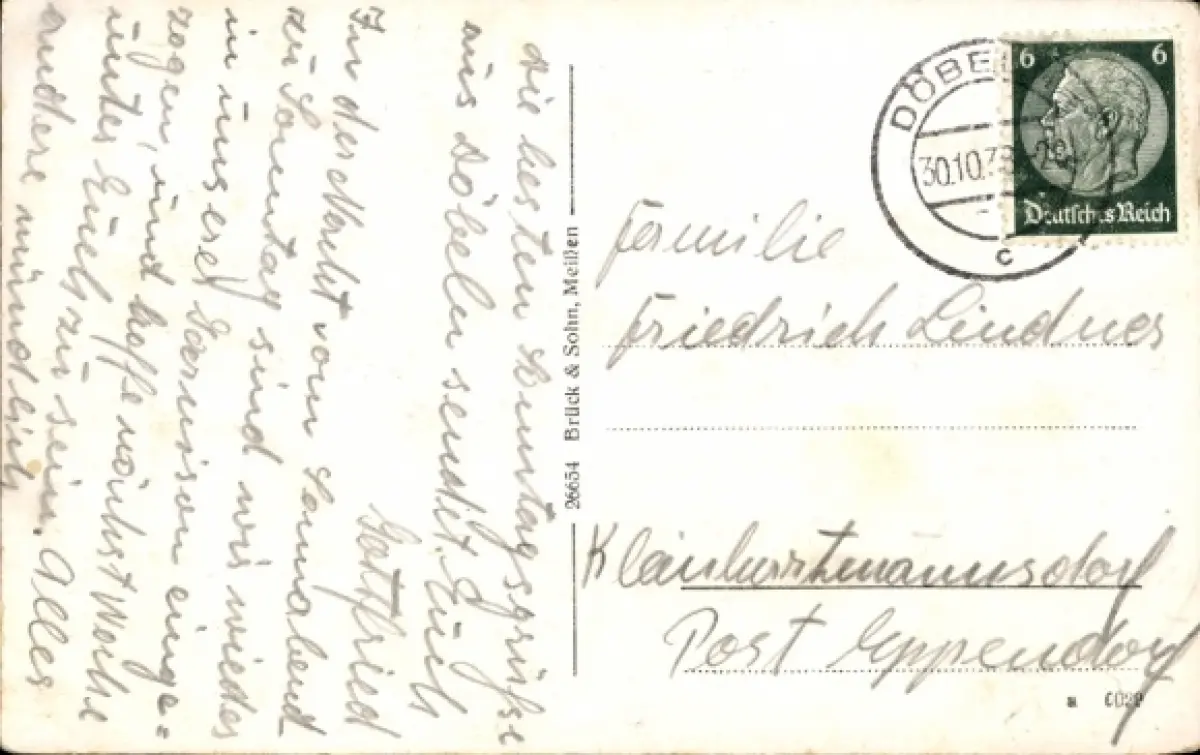 Die besten Sonntagsgrüße
aus Döbeln sendet Euch
Gottfried
In der Nacht vom Sonnabend
zu Sonntag sind wir wieder
in unserer Garnison einge=
zogen, und hoffe nächst Woche
unter Euch zu sein. Alles
andere mündlich
26654 Brück & Sohn, Meißen
DÖBE
30.10.38
c
6 6
Deutsches Reich
Familie
Friedrich Lindner
Kleinhartmannsdorf
Post Eppendorf
a